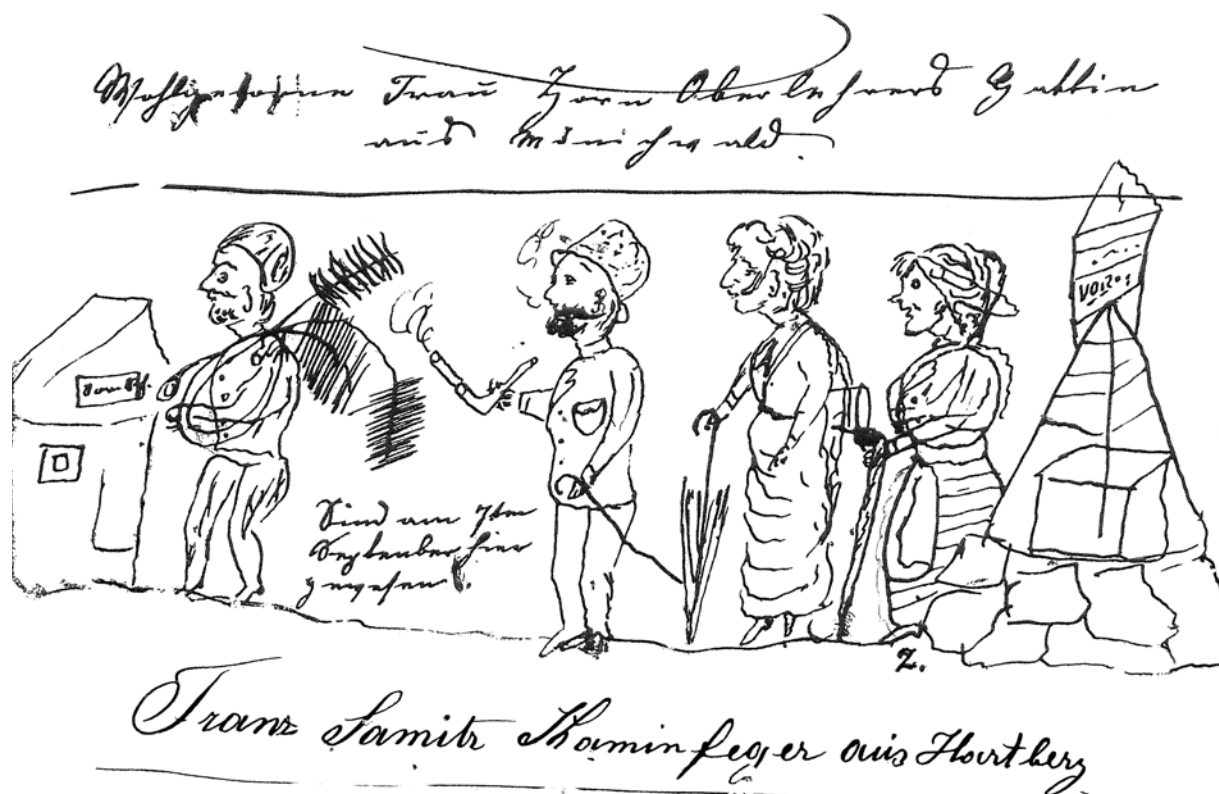 Wohlgeborne Frau Zorn Oberlehrers Gattin
aus Mönichwald.
Sind am 7ten
September hier
gewesen.
Z.
Franz Samitz Kaminfeger aus Hartberg